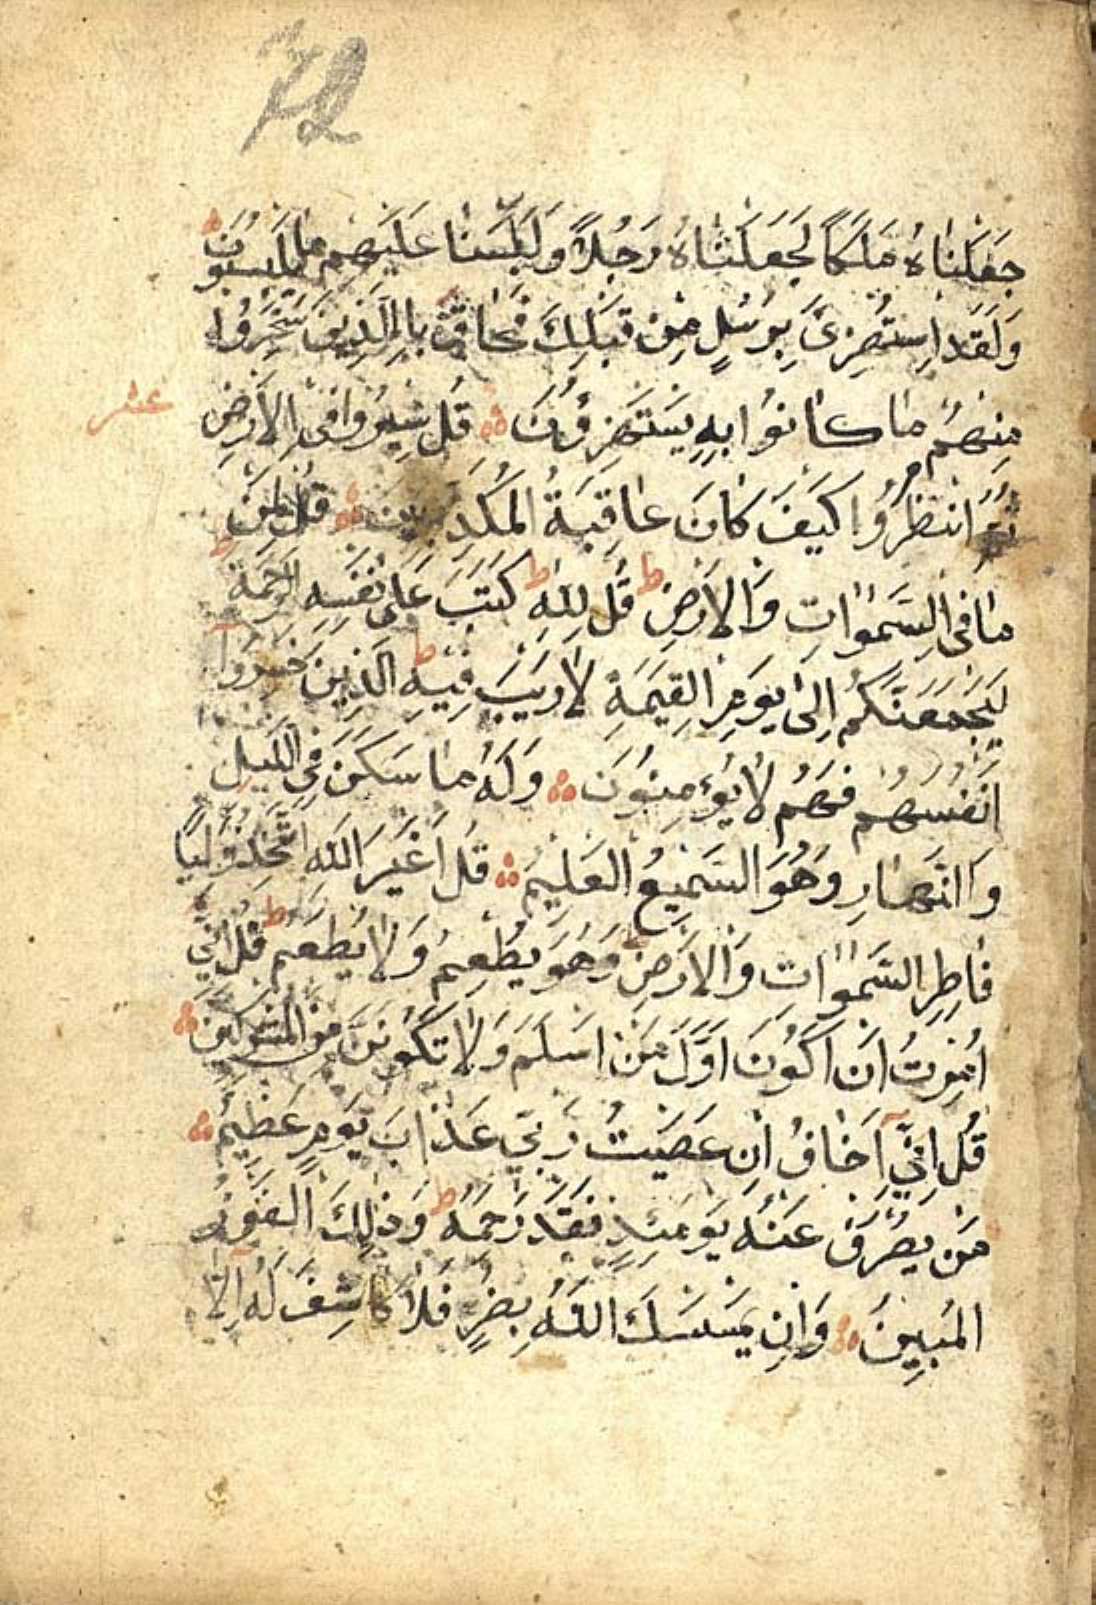 72
جَعَلْنَاهُ مَلَكًا لَجَعَلْنَاهُ رَجُلًا وَلَلَبَسْنَا عَلَيْهِمْ مَا يَلْبِسُونَ
وَلَقَدِ اسْتُهْزِئَ بِرُسُلٍ مِنْ قَبْلِكَ فَحَاقَ بِالَّذِينَ سَخِرُوا
مِنْهُمْ مَا كَانُوا بِهِ يَسْتَهْزِؤُنَ قُلْ سِيرُوا فِي الْأَرْضِ
عشر
ثُمَّ انْظُرُوا كَيْفَ كَانَ عَاقِبَةُ الْمُكَذِّبِينَ قُلْ لِمَنْ
مَا فِي السَّمٰوَاتِ وَالْأَرْضِ ط قُلْ لِلّٰهِ ط كَتَبَ عَلٰى نَفْسِهِ الرَّحْمَةَ ط
لَيَجْمَعَنَّكُمْ اِلٰى يَوْمِ الْقِيٰمَةِ لَا رَيْبَ فِيهِ ط الَّذِينَ خَسِرُوا
اَنْفُسَهُمْ فَهُمْ لَا يُؤْمِنُونَ وَلَهُ مَا سَكَنَ فِي اللَّيْلِ
وَالنَّهَارِ وَهُوَ السَّمِيعُ الْعَلِيمُ قُلْ اَغَيْرَ اللّٰهِ اَتَّخِذُ وَلِيًّا
فَاطِرِ السَّمٰوَاتِ وَالْأَرْضِ وَهُوَ يُطْعِمُ وَلَا يُطْعَمُ ط قُلْ اِنِّي
اُمِرْتُ اَنْ اَكُونَ اَوَّلَ مَنْ اَسْلَمَ وَلَا تَكُونَنَّ مِنَ الْمُشْرِكِينَ
قُلْ اِنِّي اَخَافُ اِنْ عَصَيْتُ رَبِّي عَذَابَ يَوْمٍ عَظِيمٍ
مَنْ يُصْرَفْ عَنْهُ يَوْمَئِذٍ فَقَدْ رَحِمَهُ ط وَذٰلِكَ الْفَوْزُ
الْمُبِينُ وَاِنْ يَمْسَسْكَ اللّٰهُ بِضُرٍّ فَلَا كَاشِفَ لَهُ اِلَّا